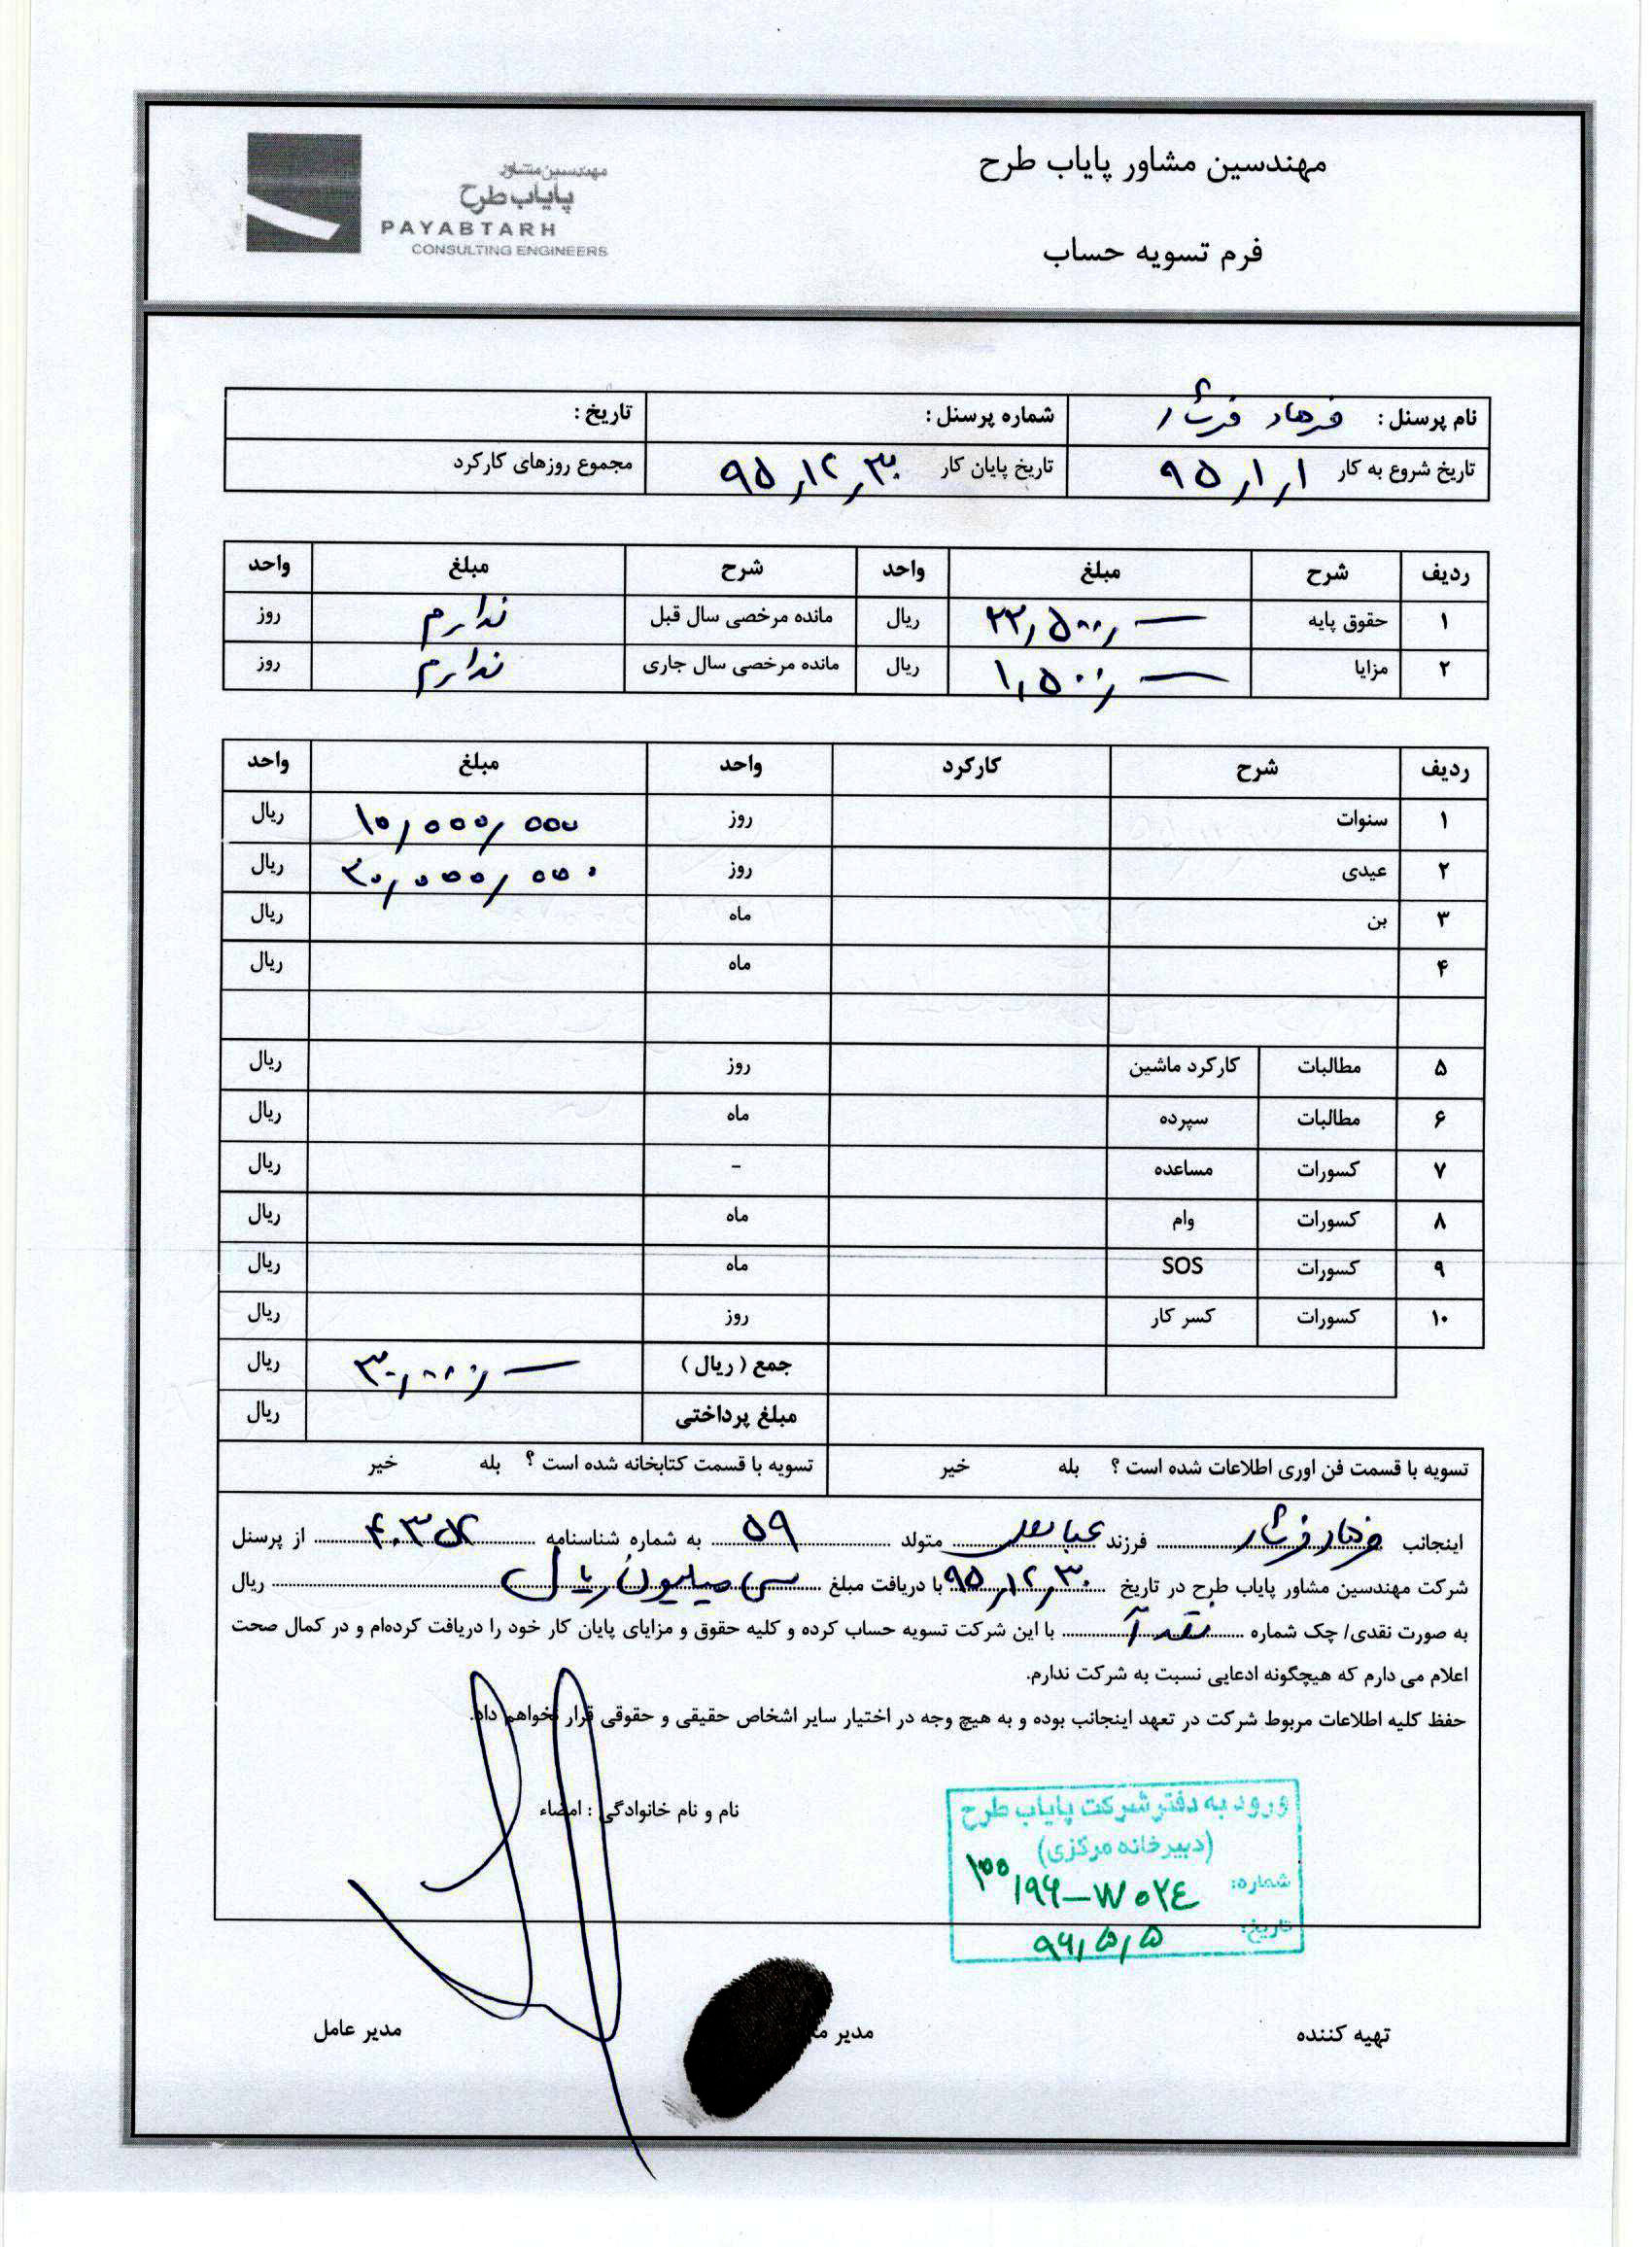 مهندسین مشاور پایاب طرح
مهندسین مشاور
پایاب طرح
PAYABTARH
CONSULTING ENGINEERS
فرم تسویه حساب
نام پرسنل : فرهاد فرشاد شماره پرسنل : تاریخ :
تاریخ شروع به کار ۹۵/۱/۱ تاریخ پایان کار ۹۵/۱۲/۳۰ مجموع روزهای کارکرد
ردیف شرح مبلغ واحد شرح مبلغ واحد
۱ حقوق پایه ریال مانده مرخصی سال قبل ندارم روز
۲ مزایا ۱,۵۰۰,— ریال مانده مرخصی سال جاری ندارم روز
ردیف شرح کارکرد واحد مبلغ واحد
۱ سنوات روز ۱۰,۰۰۰,۰۰۰ ریال
۲ عیدی روز ۳۰,۰۰۰,۰۰۰ ریال
۳ بن ماه ریال
۴ ماه ریال
۵ مطالبات کارکرد ماشین روز ریال
۶ مطالبات سپرده ماه ریال
۷ کسورات مساعده - ریال
۸ کسورات وام ماه ریال
۹ کسورات SOS ماه ریال
۱۰ کسورات کسر کار روز ریال
جمع ( ریال ) ۳۰,۰۰۰,— ریال
مبلغ پرداختی ریال
تسویه با قسمت فن اوری اطلاعات شده است ؟ بله خیر تسویه با قسمت کتابخانه شده است ؟ بله خیر
اینجانب فرهاد فرشاد فرزند متولد ۵۹ به شماره شناسنامه از پرسنل
شرکت مهندسین مشاور پایاب طرح در تاریخ ۹۵/۱۲/۳۰ با دریافت مبلغ سی میلیون ریال ریال
به صورت نقدی/ چک شماره نقدآ با این شرکت تسویه حساب کرده و کلیه حقوق و مزایای پایان کار خود را دریافت کرده‌ام و در کمال صحت
اعلام می دارم که هیچگونه ادعایی نسبت به شرکت ندارم.
حفظ کلیه اطلاعات مربوط شرکت در تعهد اینجانب بوده و به هیچ وجه در اختیار سایر اشخاص حقیقی و حقوقی قرار نخواهم داد.
نام و نام خانوادگی : امضاء
ورود به دفتر شرکت پایاب طرح
(دبیرخانه مرکزی)
شماره: ۱۰۰/۹۶-W۰۲۴
تاریخ: ۹۶/۵/۵
تهیه کننده مدیر مدیر عامل